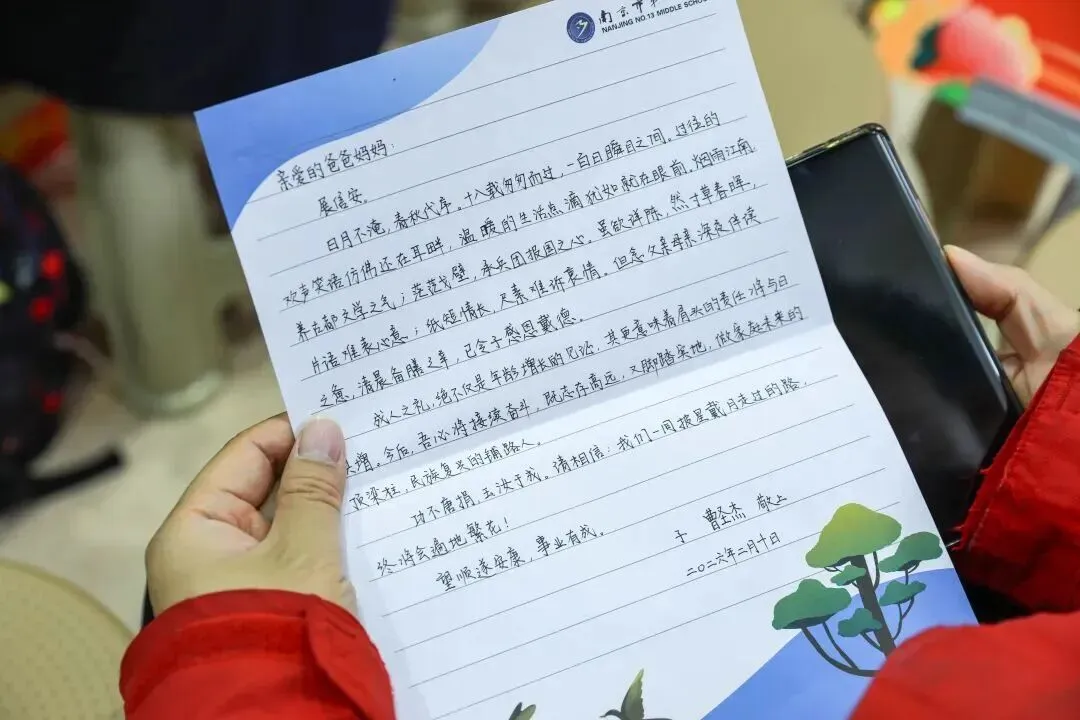 南京市
NANJING NO.13 MIDDLE SCHOO
亲爱的爸爸妈妈:
展信安。
日月不淹,春秋代序。十八载匆匆而过,一白日瞬目之间。过往的
欢声笑语仿佛还在耳畔,温暖的生活点滴犹如就在眼前。烟雨江南,
养古都文学之气;茫茫戈壁,承兵团报国之心。虽欲详陈,然寸草春晖,
片语难表心意;纸短情长,尺素难诉衷情。但念父亲母亲深夜伴读
之惫,清晨备膳之辛,已令予感恩戴德。
成人之礼,绝不仅是年龄增长的见证,其更意味着肩头的责任将与日
增。今后,吾必将接续奋斗,既志存高远,又脚踏实地,做家庭未来的
顶梁柱,民族复兴的铺路人。
功不唐捐,玉汝于成。请相信:我们一同披星戴月走过的路,
终将会遍地繁花!
望顺遂安康,事业有成。
子 曹圣杰 敬上
二〇二六年二月十日